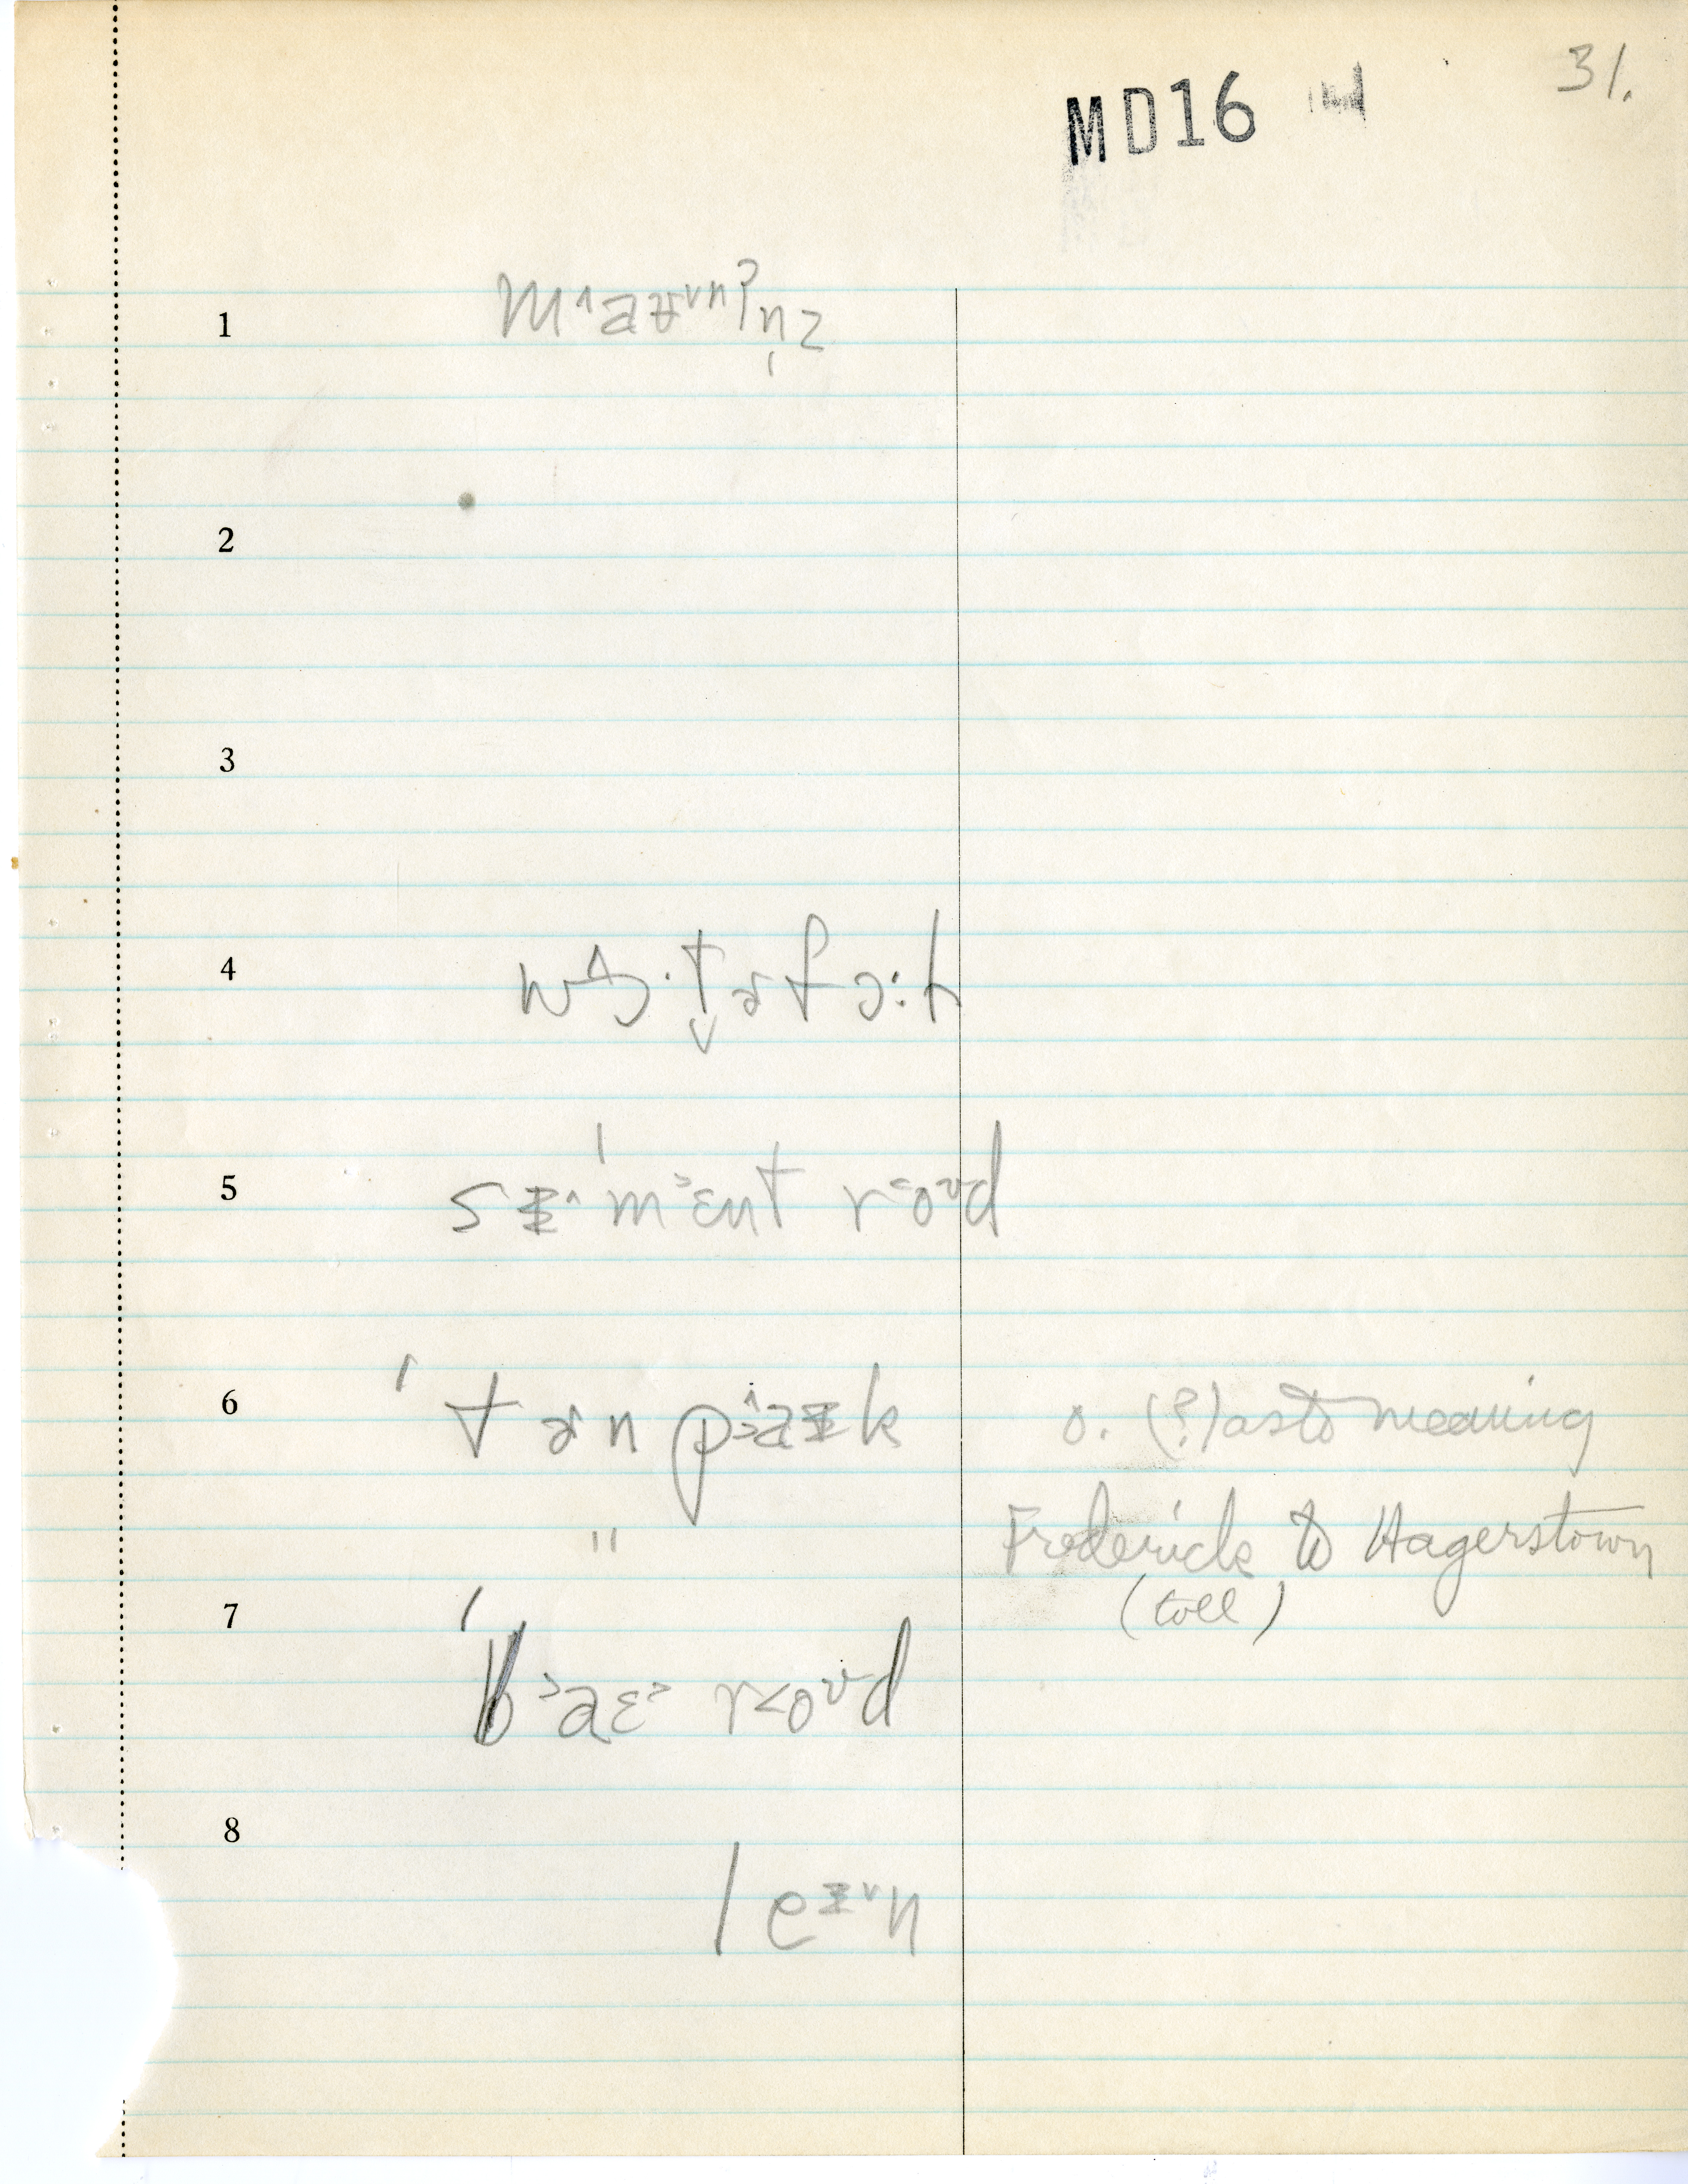 31.
MD16
1 m˄aʊ˅nʔn̩z
2
3
4 wɔ˄·t̬ɚfɔ:ɫ
5 sɨ˄ˈm˃ɛnt r˂o˅d
6 ˈtɚnp˃a˄ɨk o. (?) as to meaning
" Frederick to Hagerstown
7 (toll)
ˈb˃aɛ˃ r˂oʊd
8
leɨ˅n